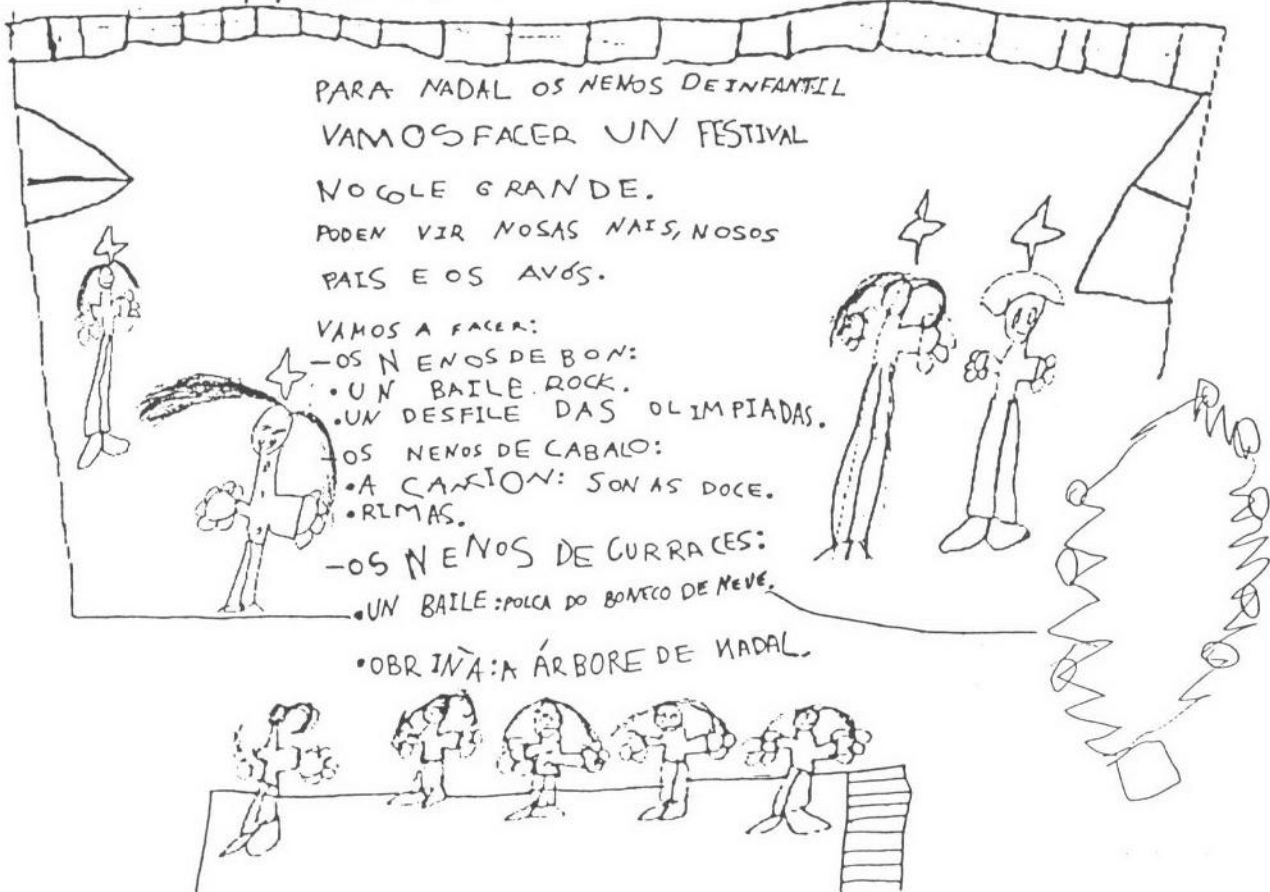 PARA NADAL OS NENOS DE INFANTIL
VAMOS FACER UN FESTIVAL
NO COLE GRANDE.
PODEN VIR NOSAS NAIS, NOSOS
PAIS E OS AVÓS.
VAMOS A FACER:
-OS NENOS DE BON:
•UN BAILE ROCK.
•UN DESFILE DAS OLIMPIADAS.
-OS NENOS DE CABALO:
•A CANCION: SON AS DOCE.
•RIMAS.
-OS NENOS DE CURRACES:
•UN BAILE: POLCA DO BONECO DE NEVE.
•OBRIÑA: A ÁRBORE DE NADAL.